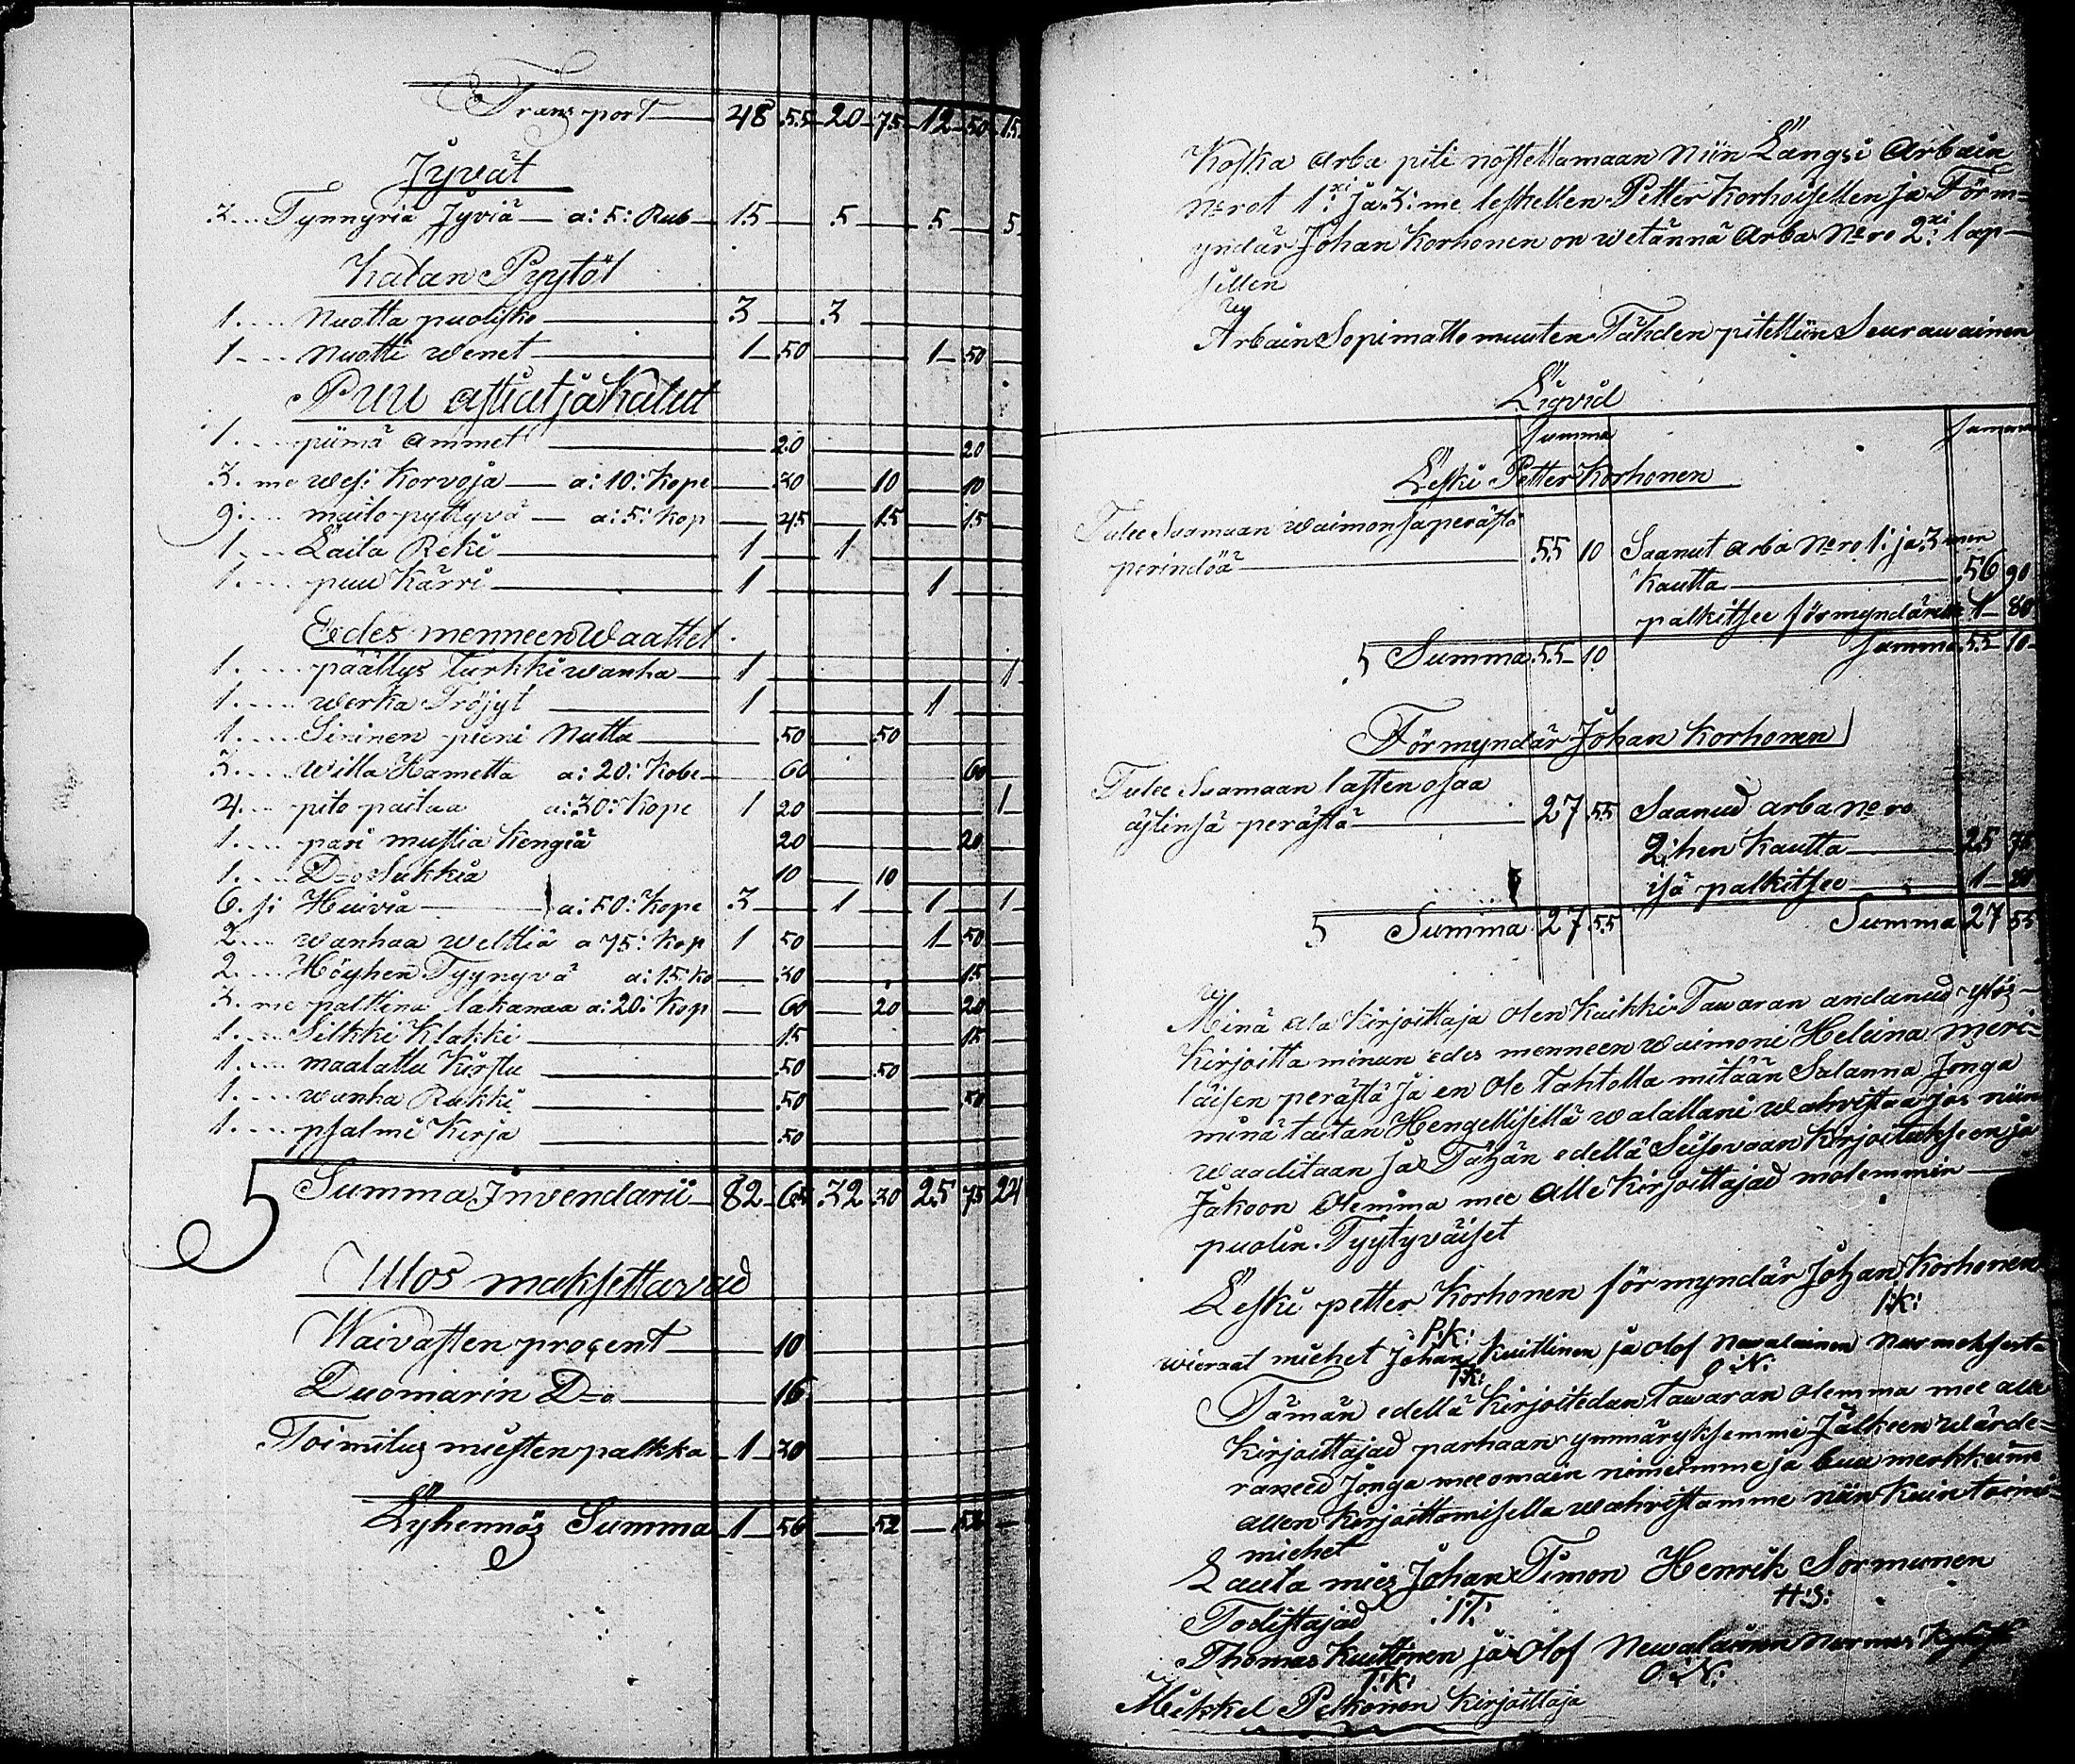 Transport 48 55 20 75 12 50 15
Jyvät
3 Tynnyriä Jyviä a: 5: Rub 15 5 5 5
Kalan Pyytöt
1 Nuotta puolisko 3 3
1 Nuotti wenet 1 50 1 50
Puu astiat ja Kalut
1 piimä ammet 20 20
3. me wesi Korvoja a: 10: Kope 30 10 10
9: maito pyttyvä a: 5: Kop 45 15 15
1 Laita Reki 1 1
1 puu Kärri 1 1
Edes menneen Waattet
1 päällys turkki wanha 1 1
1 werka Tröjyt 1 1
1 Sininen pieni Nuttu 50 50
3 willa Hametta a: 20: Kobe 60 60
4 pito paitaa a: 30: Kope 1 20 1
1 pari mustia Kengiä 20 20
1 D=o Sukkia 10 10
6. si Huivia a: 50: Kope 3 1 1 1
2 wanhaa welttiä a 75: Kop 1 50 1 50
2 Höyhen Tyynyvä a: 15: Ko 30 15
3. me palttina lakanaa a: 20: Kop 60 20 20
1 Silkki Klakki 15 15
1 maalattu Kirstu 50 50
1 wanha Rukki 50 50
1 psalmi Kirja 50
S Summa Invendarii 82 65 32 30 25 75 24
Ulos maksettavad
Waivasten proçent 10
Duomarin D=o 16
Toimitus miesten palkka 1 30
Lyhennös Summa 1 56 52 52
Koska arba piti nostettamaan Niin Langsi Arbain
N:rot 1:xi ja 3:me leskellen Petter Korhoisellen ja Förm=
yndär Johan Korhonen on wetännä Arba N:ro 2:xi lap-
sillen
Arbain Sopimattomuuten Tähden pitettiin Seurawainen
Liqvid
Summa Summa
Leski Petter Korhonen
Tulee Saamaan waimonsa perästä
perindöä 55 10 Saanut arba N:ro 1: ja 3 men
Kautta 56 90
palkitsee förmyndärille 1 80
S Summa 55 10 Summa 55 10
Förmyndär Johan Korhonen
Tulee Saamaan lasten osaa
äitinsä perästä 27 55 Saanud arba N:ro
2:hen Kautta 25 75
isä palkitsee 1 80
S Summa 27 55 Summa 27 55
Minä ala Kirjoittaja olen Kaikki Tawaran andanud ylös-
Kirjoitta minun edes menneen waimoni Heleina meri=
läisen perästä ja en ole tahtolla mitään Salanna Jonga
minä taitan Hengellisellä walallani wahvistaa jos niin
waaditaan ja Tähän edellä Seisovaan Kirjoitukseen ja
Jakoon Olemma mee alle Kirjoittajad molemmin
puolin Tyytyväiset
Leski petter Korhonen förmyndär Johan Korhonen
P:K: I:K:
wieraat miehet Johan Kuittinen ja Olof Newalainen Nurmeksesta
I:K: O:N:
Tämän edellä Kirjoitedun tawaran olemma mee alle
Kirjoittajad parhaan ymmäryksemme Jälkeen wärde=
raneed Jonga mee omain nimeimme ja buu merkkeimme
allen Kirjoittamisella wahvistamme niin Kuin toimi=
miehet
Lauta mies Johan Timon Henrik Sormunen
I:T: H:S:
Todistajad
Thomas Kuittinen ja Olof Newalainen
T:K: O:N:
Mikkel Pelkonen Kirjoittaja